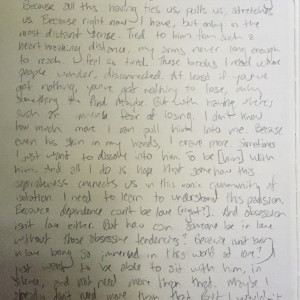 Because all this having ties us, pulls us, stretches
us. Because right now I have, but only in the
most distant sense. Tied to him from such a
heart breaking distance. my arms never long enough
to reach. I feel so tired. These books I read where
people wander, disconnected. At least if you've
got nothing, you've got nothing to lose, only
something to find. Maybe. But with having there's
such fear of losing. I don't know
how much more I can pull him into me. Because
even his skin in my hands, I crave more. Sometimes
I just want to dissolve into him. To be with
him. And all I do is hope that somehow this
separateness connects us in this community of
isolation. I need to learn to understand this passion.
Because dependence can't be love [right?]. And obsession
isn't love either. But how can someone be in love
without those obsessive tendencies? Because isn't being
in love being so immersed in this world of
just want to be able to sit with him, in
silence, and not need more than that. Maybe I
need more than that